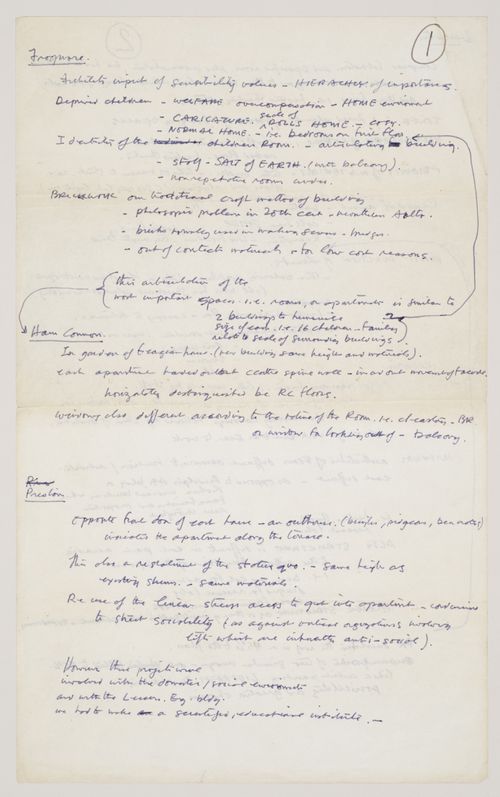 1
Frogmore.
Architects input of sensibility values - HIERARCHY of importance.
Deprived children - WELFARE overcompensation - HOME environment
- CARICATURE. scale of DOLLS HOME - COSY.
- NORMAL HOME. - i.e. bedrooms on first floor
Identities of the children Room. - articulating building.
- STOLY - SALT of EARTH. (with balcony).
- non repetitive room
BRICKWORK our traditional craft matter of building
- philosophic problem in 20th cent - Aalto.
- bricks normally used in
- out of context materials - for low cost reasons.
this articulation of the
most important spaces i.e. rooms, or apartments is similar to
2 buildings to humanise
size of each. i.e. 16 children - families
relate to scale of surrounding buildings
Ham Common.
In garden of Georgian house. (new building same heights and materials).
each apartment based on centre spine wall - in and out movement facade.
horizontally distinguished by RC floors.
windows also different according to the nature of the Room. i.e. - BR
or window for looking out of - balcony.
Preston.
opposite front door of each house - an outhouse. (bicycles, pidgeons,
the apartment along the terrace.
This also a restatement of the status quo. - same high as
existing slums. - same materials.
Re use of the linear street access to get into apartment -
to street sociability (as against vertical
lifts which are inherently anti-social).
However these projects were
involved with the domestic / social environment
and with the Leices. Eng. bldg.
we had to make a scientific, educational institute. -